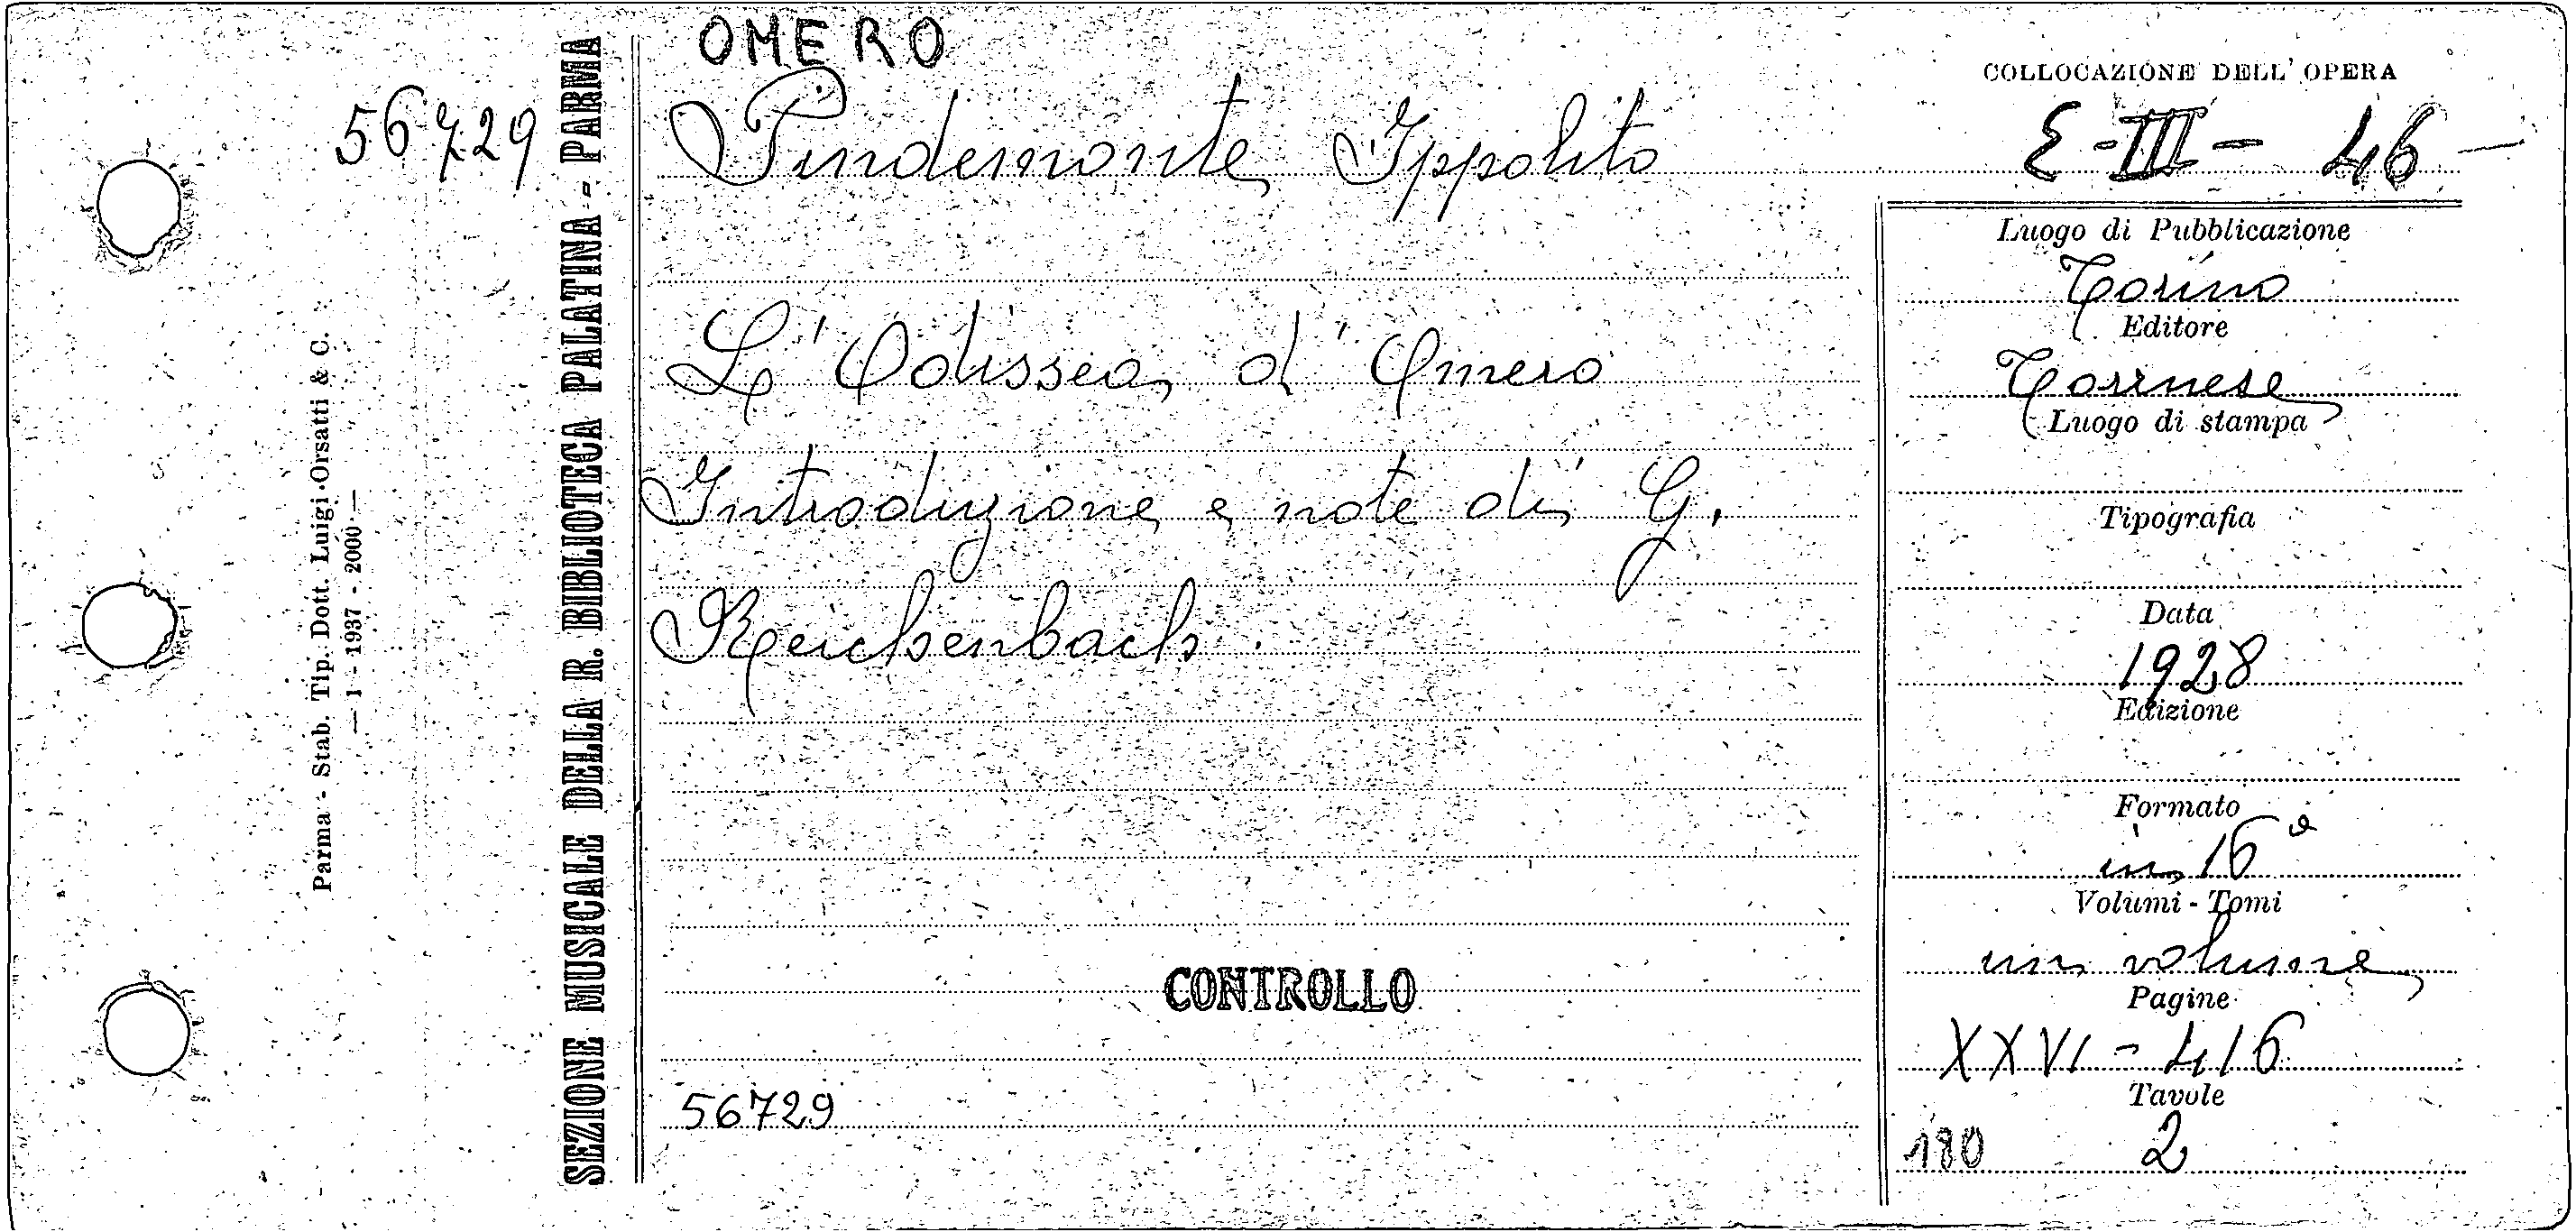 OMERO
56729
Pindemonte Ippolito
L'Odissea d'Omero
Introduzione e note di G.
Reichenbach.
CONTROLLO
56729
COLLOCAZIONE DELL'OPERA
E-III-46-
Luogo di Pubblicazione
Torino
Editore
Torinese
Luogo di stampa
Tipografia
Data
1928
Edizione
Formato
in 16°
Volumi - Tomi
un volume
Pagine
XXVI-416
Tavole
180 2
SEZIONE MUSICALE DELLA R. BIBLIOTECA PALATINA - PARMA
Parma - Stab. Tip. Dott. Luigi Orsatti & C.
— 1 - 1937 - 2000 —